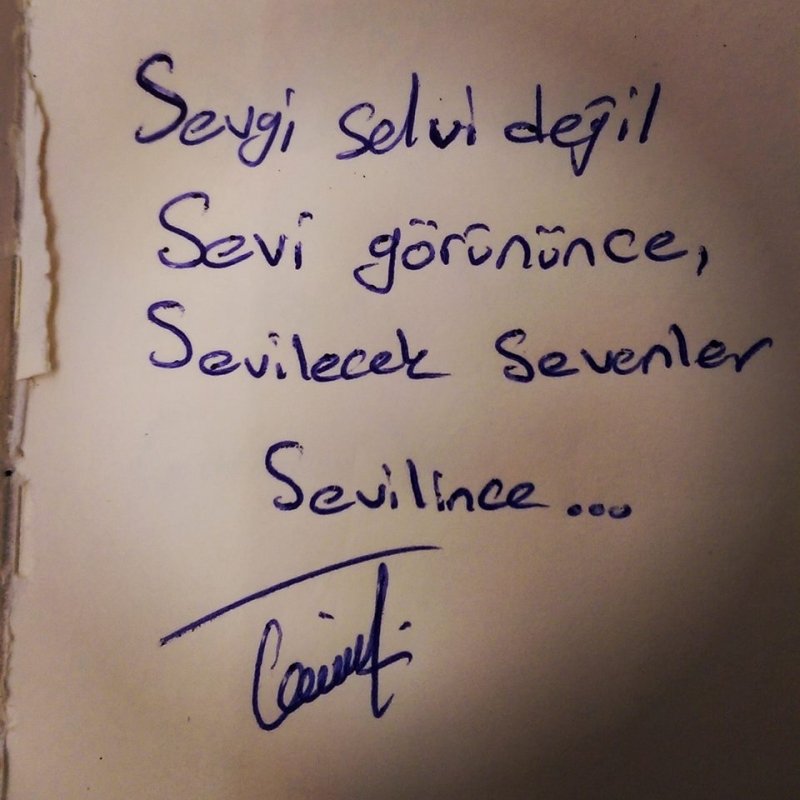 Sevgi selvi değil
Sevi görününce,
Sevilecek sevenler
Sevilince...